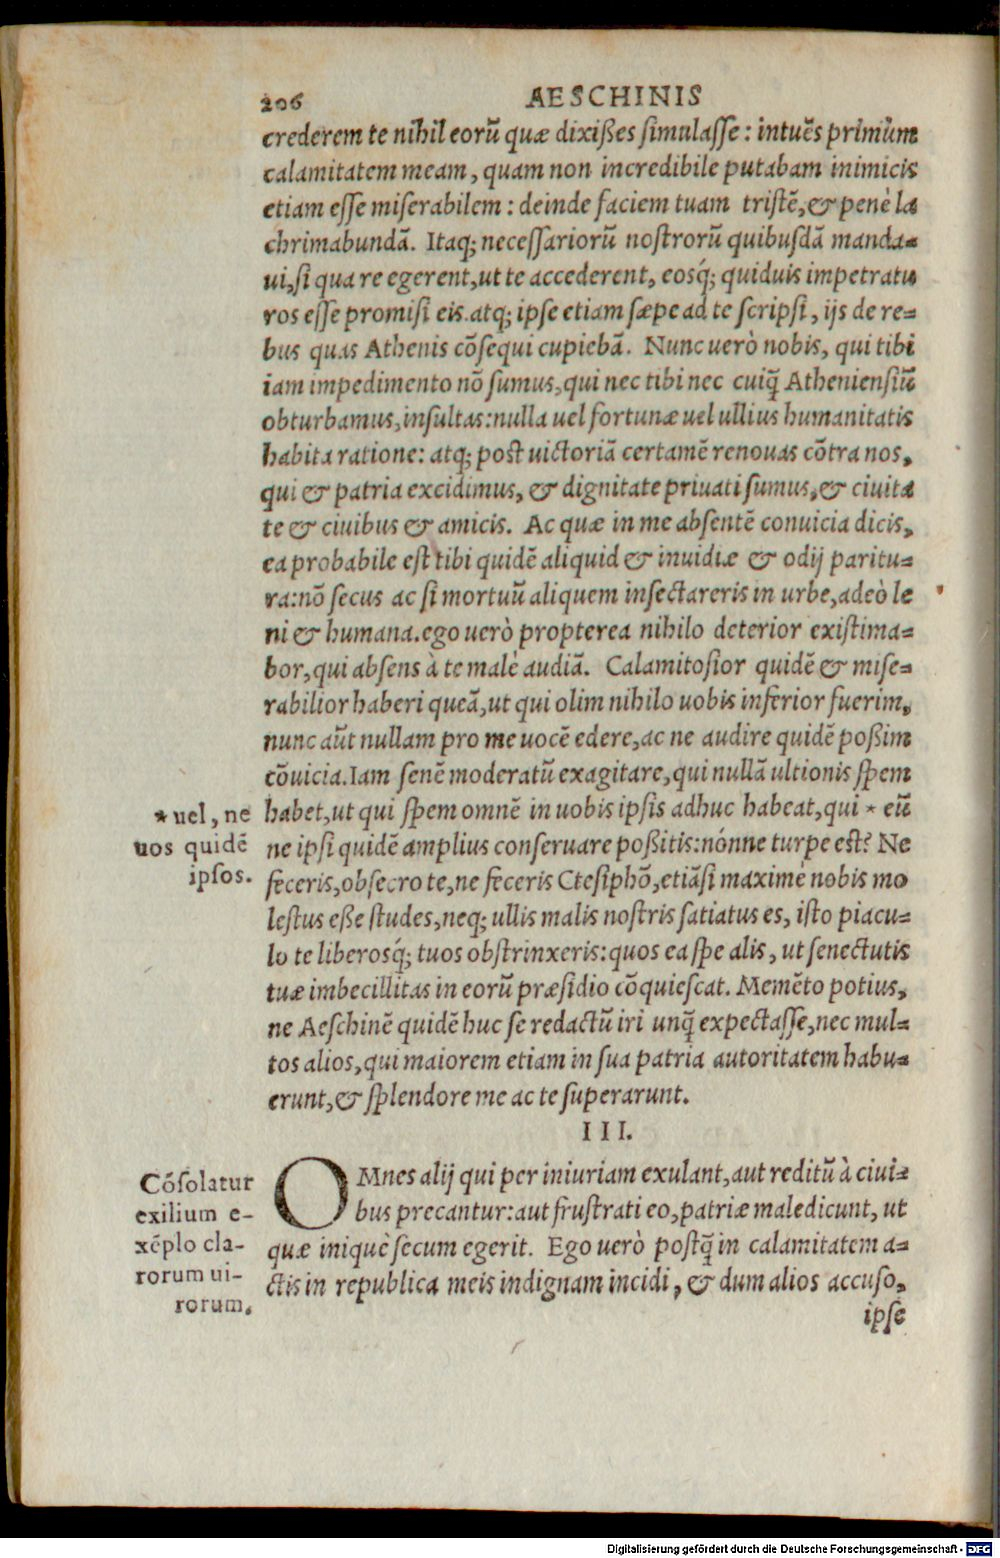 206 AESCHINIS
crederem te nihil eorũ quæ dixißes simulasse: intuẽs primùm
calamitatem meam, quam non incredibile putabam inimicis
etiam esse miserabilem: deinde faciem tuam tristẽ, & penè la
chrimabundã. Itaq; necessariorũ nostrorũ quibusdã manda-
ui, si qua re egerent, ut te accederent, eosq́; quiduis impetratu
ros esse promisi eis. atq; ipse etiam sæpe ad te scripsi, ijs de re-
bus quas Athenis cõsequi cupiebã. Nunc uerò nobis, qui tibi
iam impedimento nõ sumus, qui nec tibi nec cuiq̃ Atheniensiũ
obturbamus, insultas: nulla uel fortunæ uel ullius humanitatis
habita ratione: atq; post uictoriã certamẽ renouas cõtra nos,
qui & patria excidimus, & dignitate priuati sumus, & ciuita
te & ciuibus & amicis. Ac quæ in me absentẽ conuicia dicis,
ea probabile est tibi quidẽ aliquid & inuidiæ & odij paritu-
ra: nõ secus ac si mortuũ aliquem insectareris in urbe, adeò le
ni & humana. ego uerò propterea nihilo deterior existima-
bor, qui absens à te malè audiã. Calamitosior quidẽ & mise-
rabilior haberi queã, ut qui olim nihilo uobis inferior fuerim,
nunc aũt nullam pro me uocẽ edere, ac ne audire quidẽ poßim
cõuicia. Iam senẽ moderatũ exagitare, qui nullã ultionis spem
habet, ut qui spem omnẽ in uobis ipsis adhuc habeat, qui * eũ
ne ipsi quidẽ amplius conseruare poßitis: nónne turpe est? Ne
feceris, obsecro te, ne feceris Ctesiphõ, etiãsi maximè nobis mo
lestus eße studes, neq; ullis malis nostris satiatus es, isto piacu-
lo te liberosq́; tuos obstrinxeris: quos ea spe alis, ut senectutis
tuæ imbecillitas in eorũ præsidio cõquiescat. Memẽto potius,
ne Aeschinẽ quidẽ huc se redactũ iri unq̃ expectasse, nec mul-
tos alios, qui maiorem etiam in sua patria autoritatem habu-
erunt, & splendore me ac te superarunt.
* uel, ne
uos quidẽ
ipsos.
III.
OMnes alij qui per iniuriam exulant, aut reditũ à ciui-
bus precantur: aut frustrati eo, patriæ maledicunt, ut
quæ iniquè secum egerit. Ego uerò postq̃ in calamitatem a-
ctis in republica meis indignam incidi, & dum alios accuso,
ipse
Cõsolatur
exilium e-
xẽplo cla-
rorum ui-
rorum.
Digitalisierung gefördert durch die Deutsche Forschungsgemeinschaft - DFG